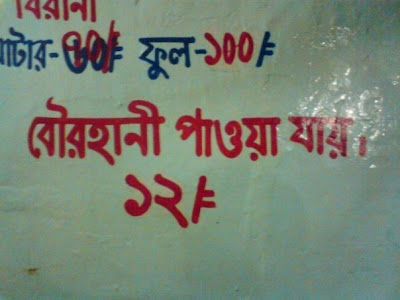 বিরানী
ফুল-১০০/=
বৌরহানী পাওয়া যায়।
১২/=